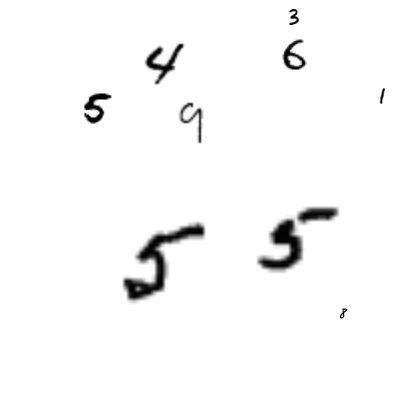 3
4 6
5 9 1
5 5
8